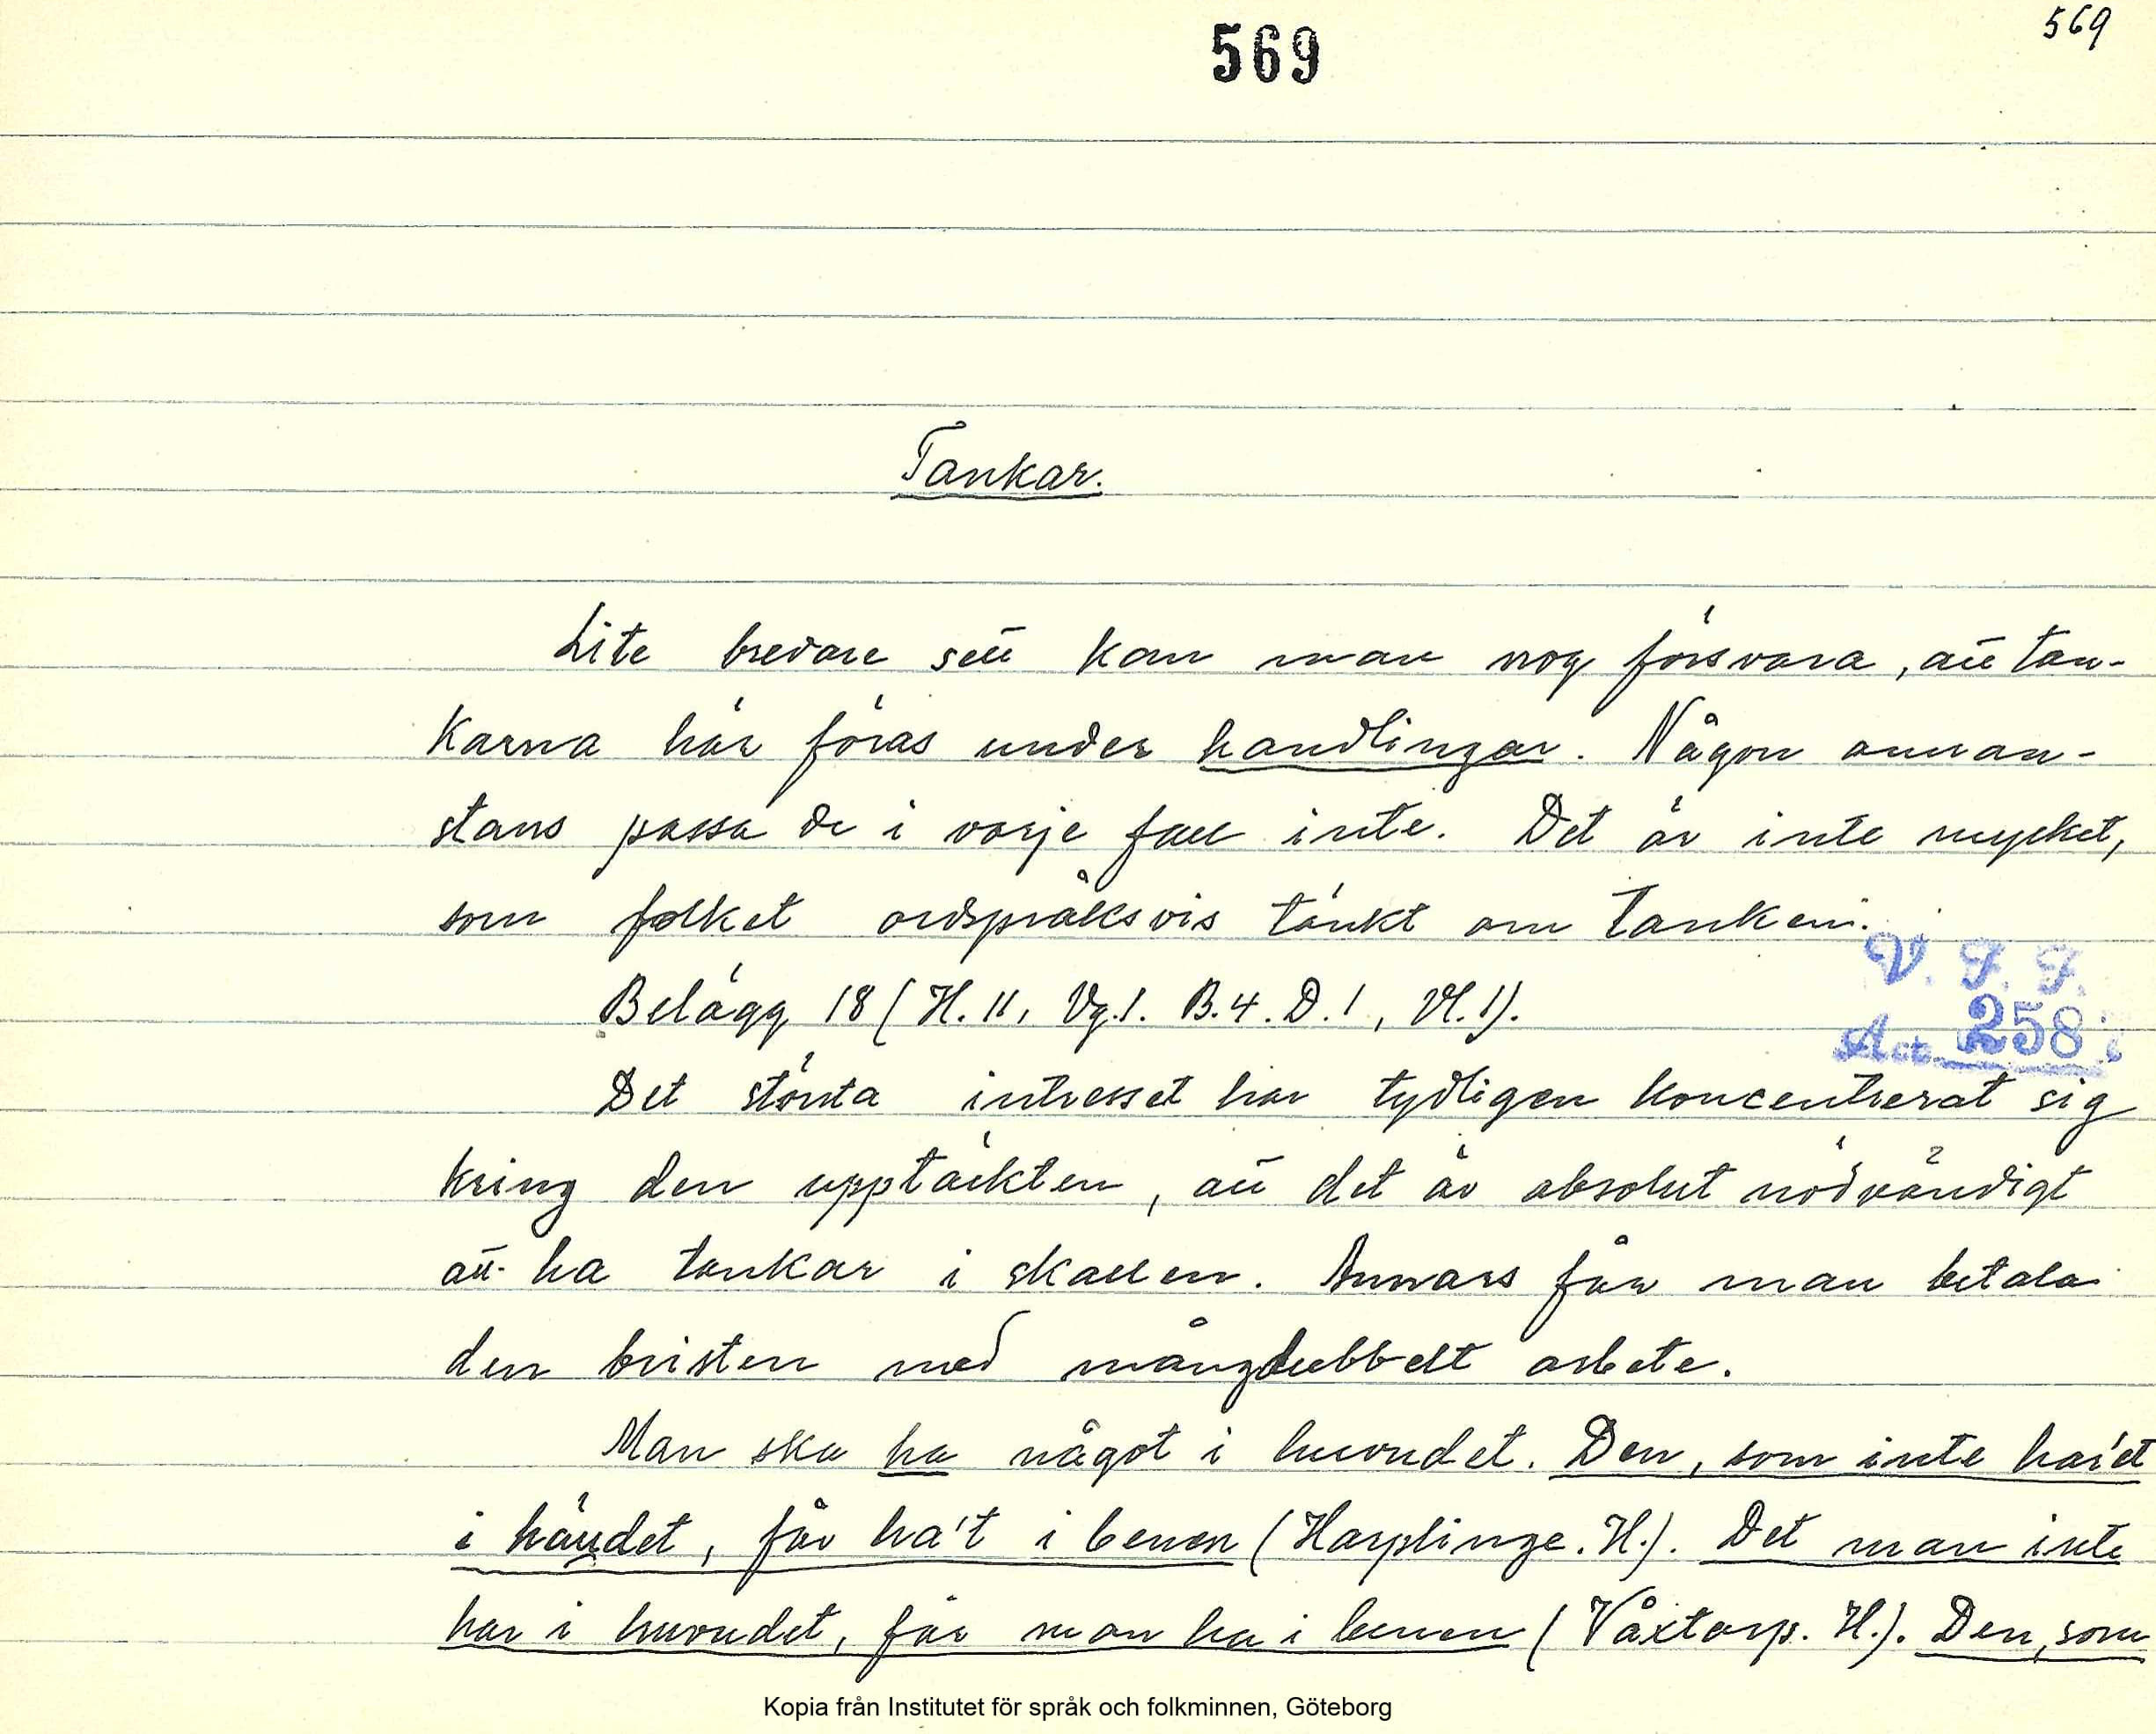 569
569
Tankar.
Lite bredare sett kan man nog försvara, att tan-
karna här föras under handlingar. Någon annan-
stans passa de i varje fall inte. Det är inte mycket,
som folket ordspråksvis tänkt om tanken.
V. F. F.
Belägg 18 (H. 11, Vg. 1. B. 4. D. 1, Vl. 1).
Acc. 258
Det största intresset har tydligen koncentrerat sig
kring den upptäckten, att det är absolut nödvändigt
att ha tankar i skallen. Annars får man betala
den bristen med mångdubbelt arbete.
Man ska ha något i huvudet. Den, som inte har'et
i häudet, får ha't i benen (Harplinge. H.). Det man inte
har i huvudet, får man ha i benen (Våxtorp. H.). Den, som
Kopia från Institutet för språk och folkminnen, Göteborg